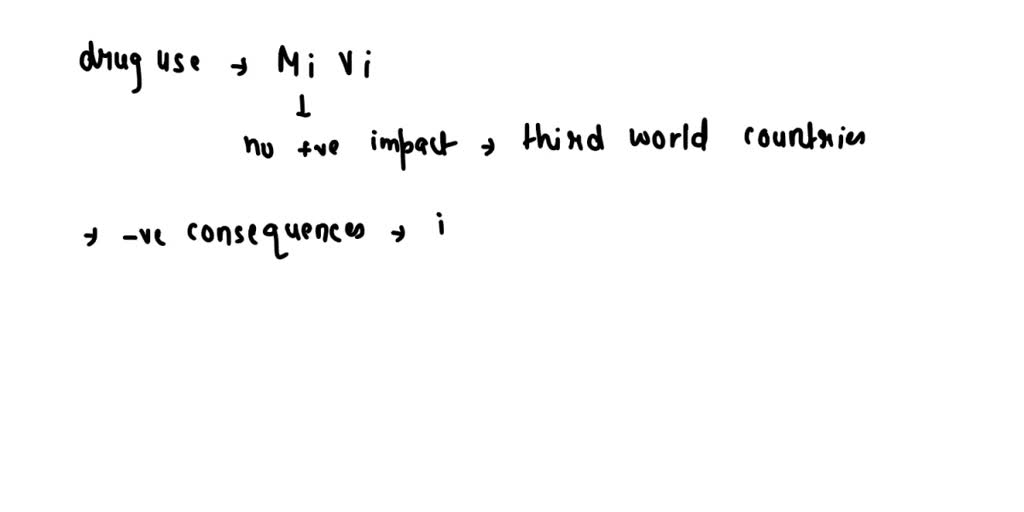 drug use → Mi Vi
↓
no +ve impact → third world countries
→ -ve consequences → i